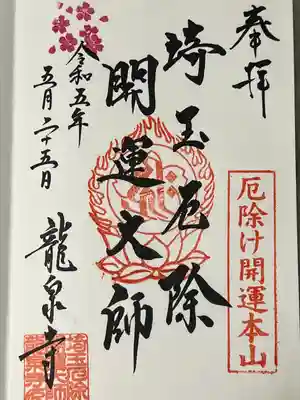 奉拝
厄除け開運本山
埼玉厄除
開運大師
令和五年
五月二十五日
龍泉寺